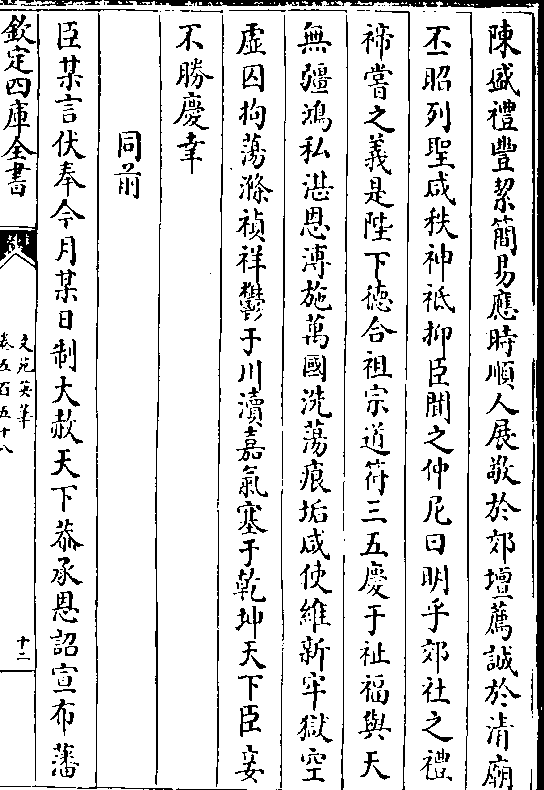 陳盛禮豐絜簡易應時順人展敬於郊壇薦誠於清廟
丕昭列聖咸秩神祗抑臣聞之仲尼曰明乎郊社之禮
禘嘗之義是陛下徳合祖宗道符三五慶于祉福與天
無彊鴻私湛恩溥施萬國洗蕩痕垢咸使維新牢獄空
虚囚拘蕩滌禎祥鬱于川瀆嘉氣塞于乾坤天下臣妾
不勝慶幸
同前
臣某言伏奉今月某日制大赦天下恭承恩詔宣布藩
欽定四庫全書
文苑英華
卷五百五十八
十二